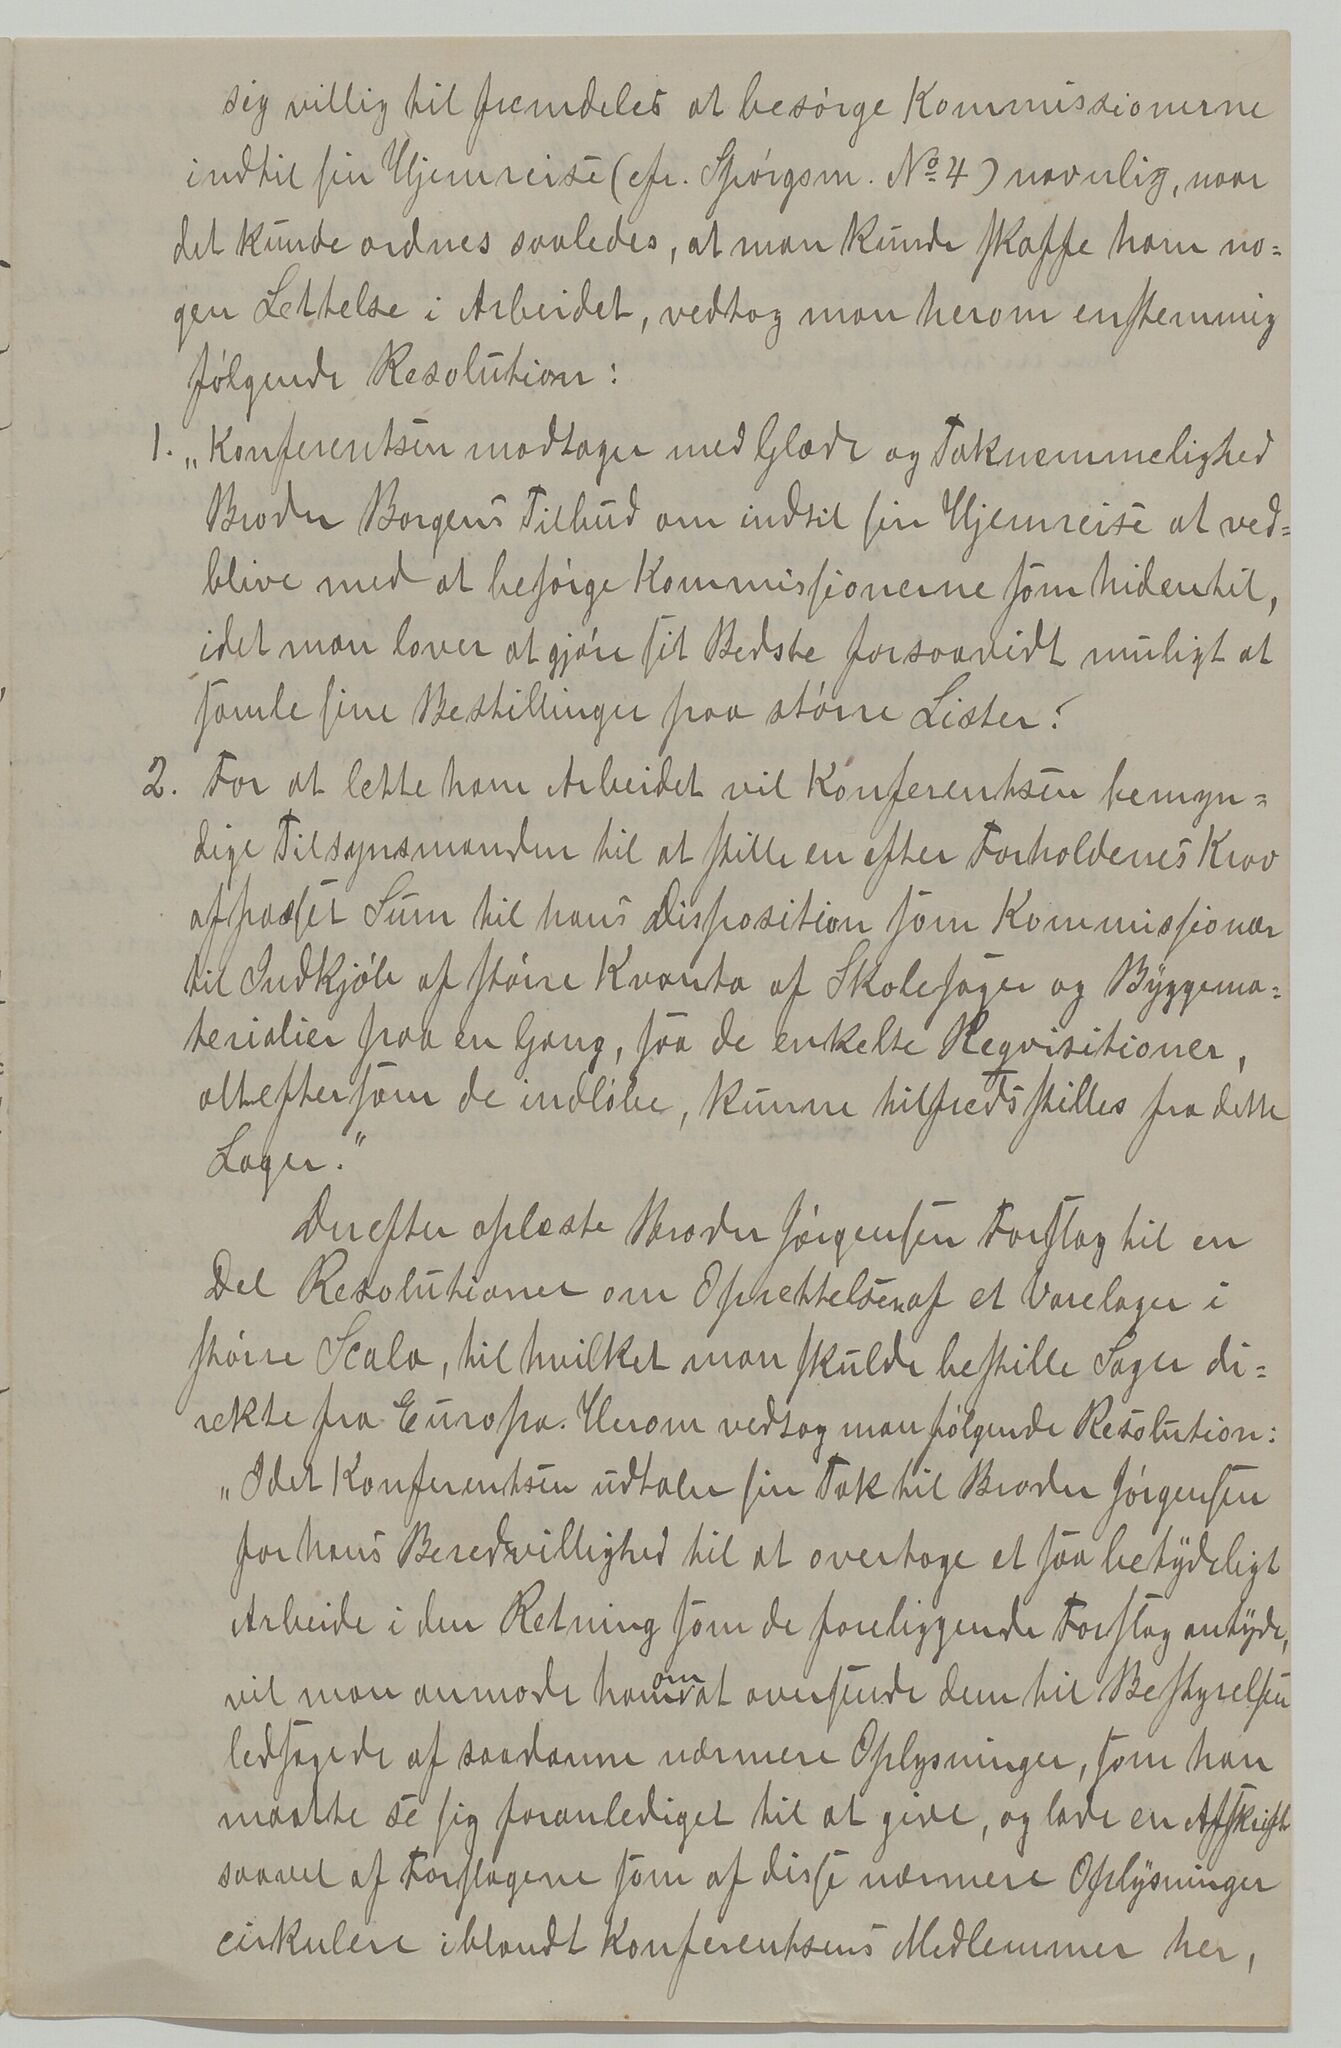 sig villig til fremdeles at besórge Kommissionerne
indtil sin Hjemreise (cfr. Spórgsm. No 4) navnlig, naar
det kunde ordnes saaledes, at man kunde skaffe ham no=
gen Lettelse i Arbeidet, vedtog man herom enstemmig
fólgende Resolution:
1. „Konferentsen modtager med Glæde og Taknemmelighed
Broder Borgens Tilbud om indtil sin Hjemreise at ved=
blive med at besórge Kommissionerne som hidentil,
idet man lover at gjóre sit Bedste forsaavidt muligt at
samle sine Bestillinger paa stórre Lister.
2. For at lette ham Arbeidet vil Konferentsen bemyn=
dige Tilsynsmanden til at stille en efter Forholdenes Krav
afpasset Sum til hans Disposition som Kommissionær
til Indkjób af stórre Kvanta af Skolesager og Byggema=
terialier paa en Gang, saa de enkelte Reqvisitioner,
alt eftersom de indlóbe, kunne tilfredsstilles fra dette
Lager."
Derefter oplæste Broder Jórgensen Forslag til en
Del Resolutioner om Oprettelsen af et Varelager i
stórre Scala, til hvilket man skulde bestille Sager di=
rekte fra Europa. Herom vedtog man fólgende Resolution:
„Idet Konferentsen udtaler sin Tak til Broder Jórgensen
for hans Beredvillighed til at overtage et saa betydeligt
Arbeide i den Retning som de foreliggende Forslag antyde,
vil man anmode ham om at oversende dem til Bestyrelsen
ledsagede af saadanne nærmere Oplysninger, som han
maatte se sig foranlediget til at give, og lade en Afskrift
saavel af Forslagene som af disse nærmere Oplysninger
cirkulere iblandt Konferentsens Medlemmer her,